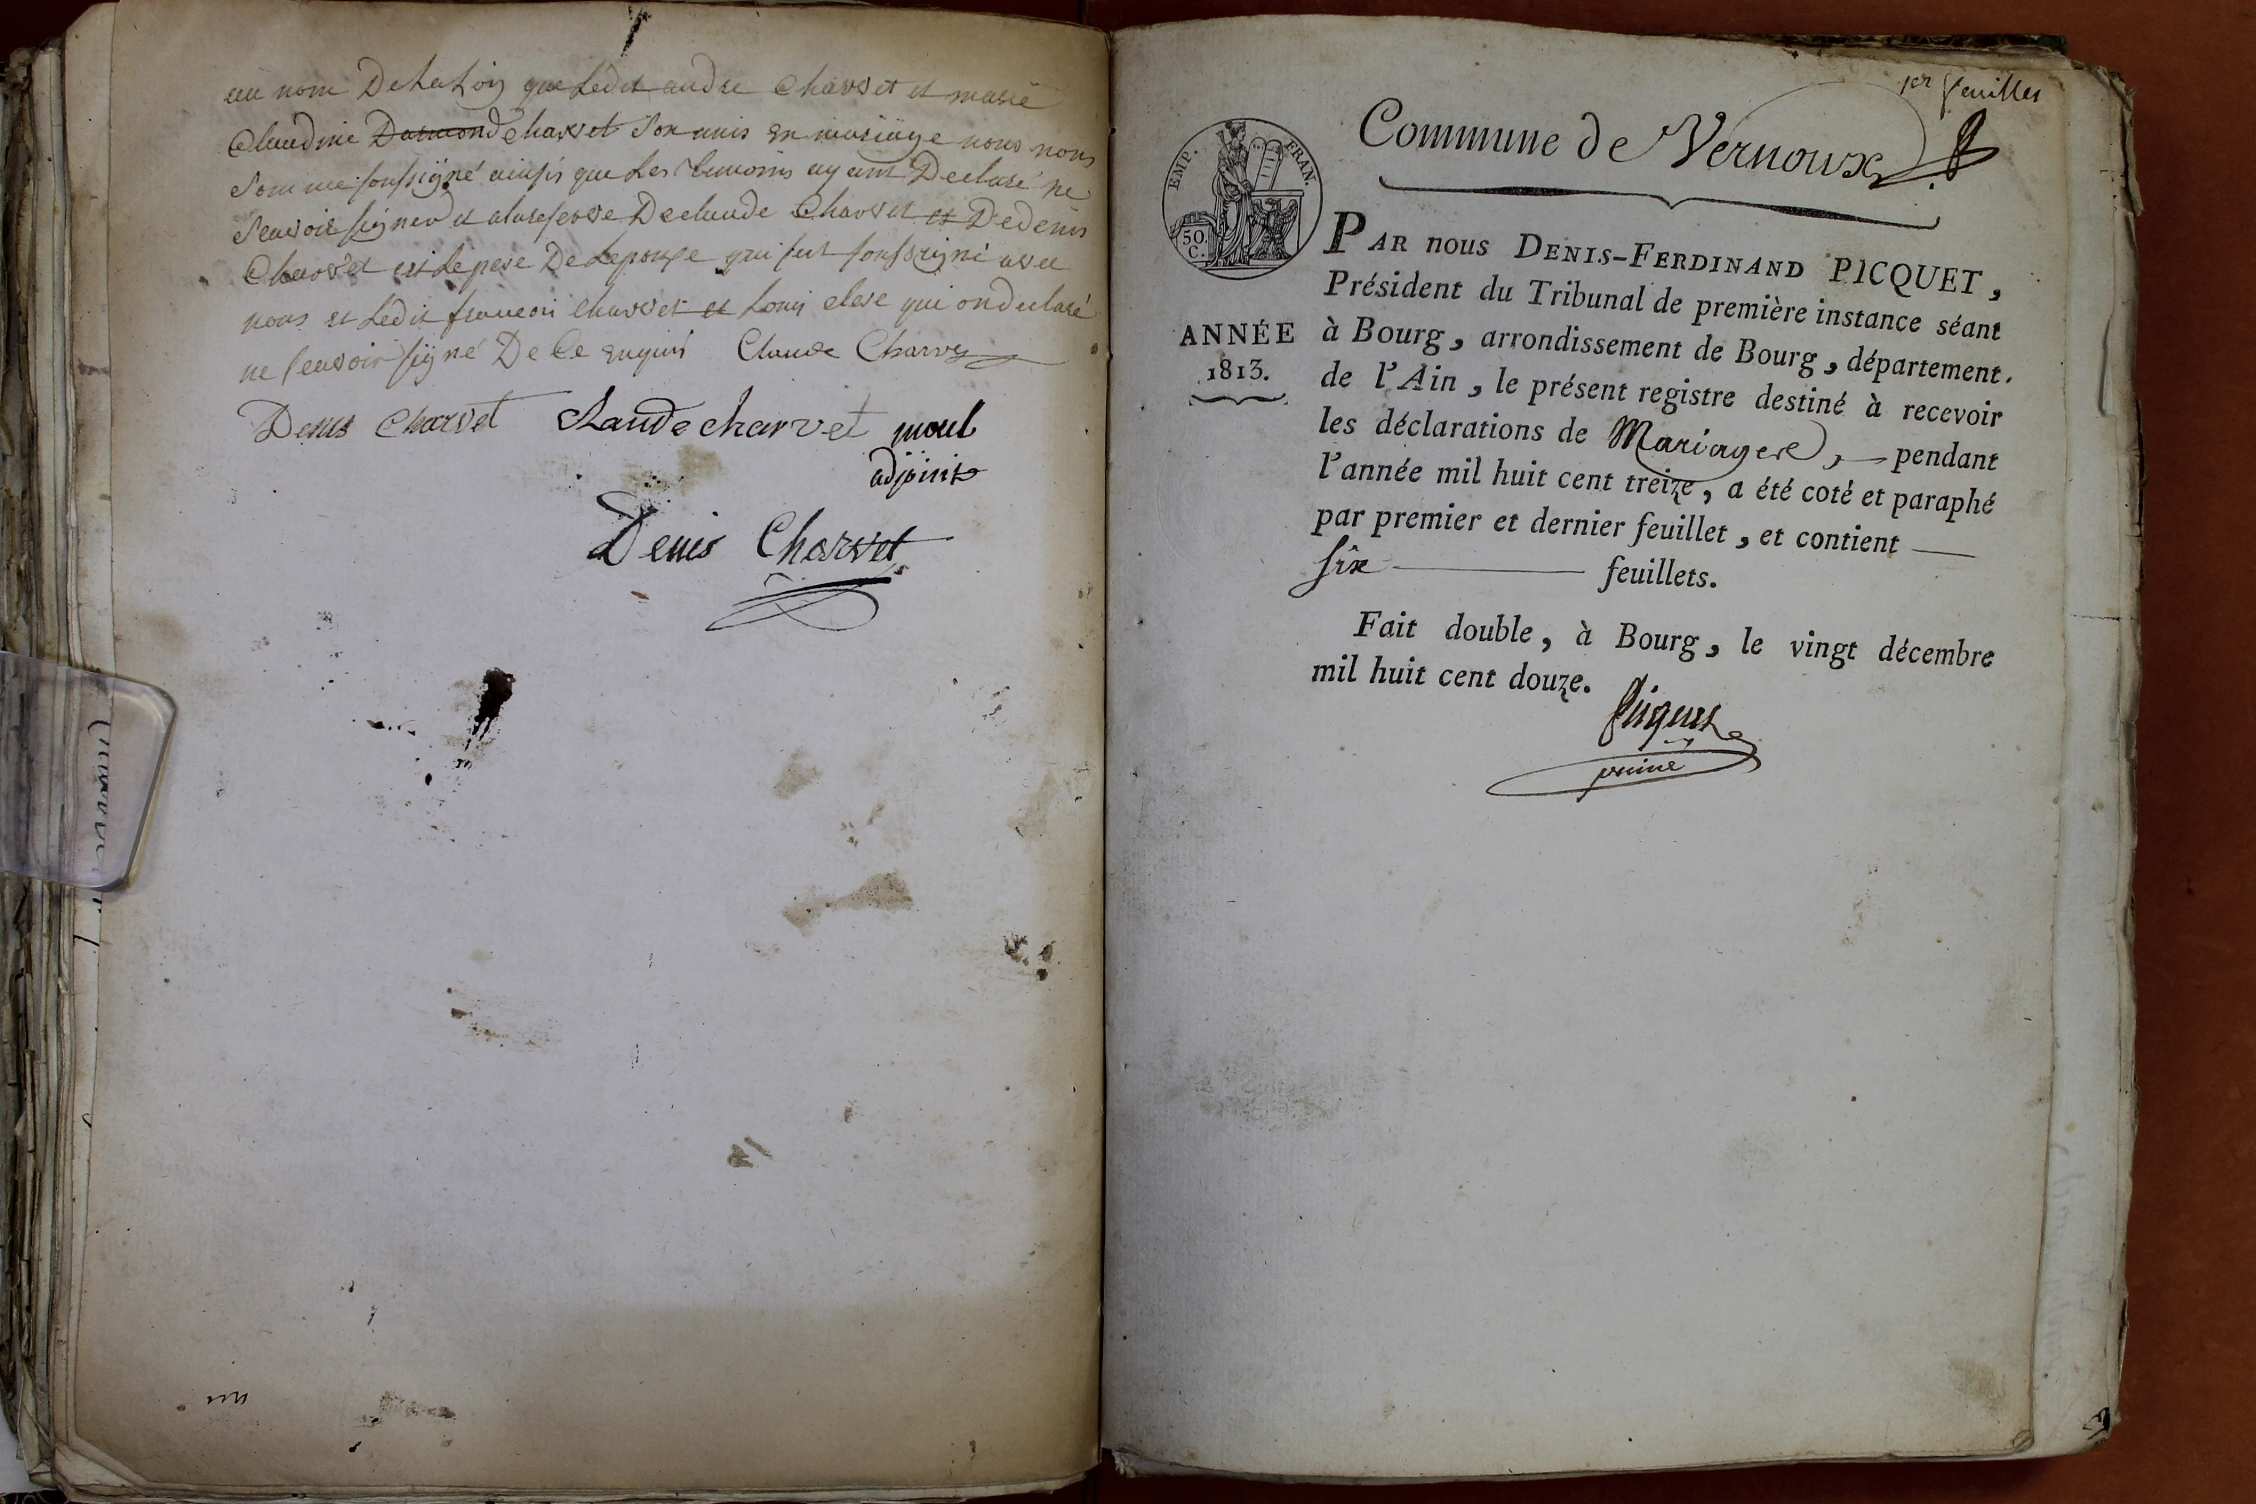 au nom De La Loy que Ledit andre Charvet et marie
Claudine Darmond Charvet Son unis en mariage nous nous
Somme soussigné ainsis que Les temoins ayant Declaré ne
Scavoir signer et a la reserve De claude Charvet et De denis
Charvet et Le pere De Lepouse qui sut soussigné avec
nous et Ledit francois Charvet et Louis clere qui on declaré
ne scavoir signé De Ce enquis Claude Charvet
Denis Charvet Claude charvet moul
adjoint
Denis Charvet
1er feuillet
Commune de Vernoux
EMP. FRAN.
50.
C.
ANNÉE
1813.
PAR nous DENIS-FERDINAND PICQUET,
Président du Tribunal de première instance séant
à Bourg, arrondissement de Bourg, département
de l'Ain, le présent registre destiné à recevoir
les déclarations de Mariages, pendant
l'année mil huit cent treize, a été coté et paraphé
par premier et dernier feuillet, et contient
six feuillets.
Fait double, à Bourg, le vingt décembre
mil huit cent douze.
Picquet